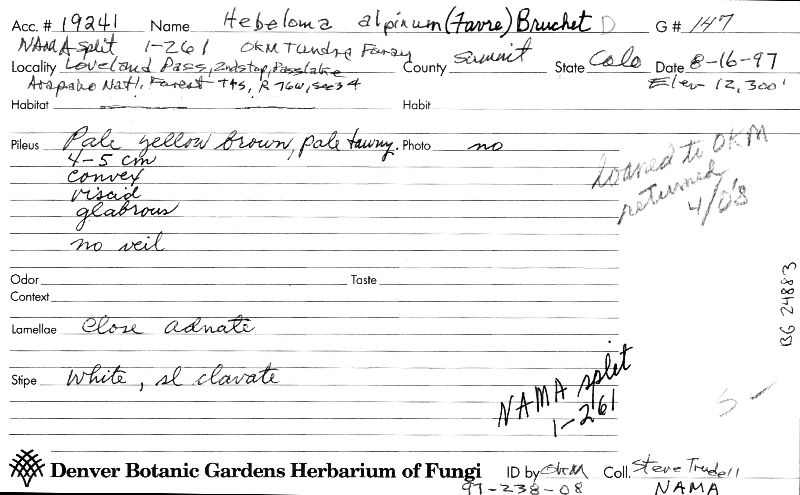 Acc. # 19241 Name Hebeloma alpinum (Favre) Bruchet D G# 147
NAMA split 1-261 OKM Tundra Foray
Locality Loveland Pass, 2nd stop, Pass lake County Summit State Colo Date 8-16-97
Arapaho Nat'l. Forest T4S, R76W, sec 34 Elev 12,300'
Habitat Habit
Pileus Pale yellow brown, pale tawny. Photo no
4-5 cm
convex
viscid
glabrous
no veil
loaned to OKM
returned
4/03
Odor Taste
Context
BG 24883
Lamellae Close adnate
Stipe White, sl clavate
NAMA split
1-261
Denver Botanic Gardens Herbarium of Fungi ID by OKM Coll. Steve Trudell
97-238-08 NAMA